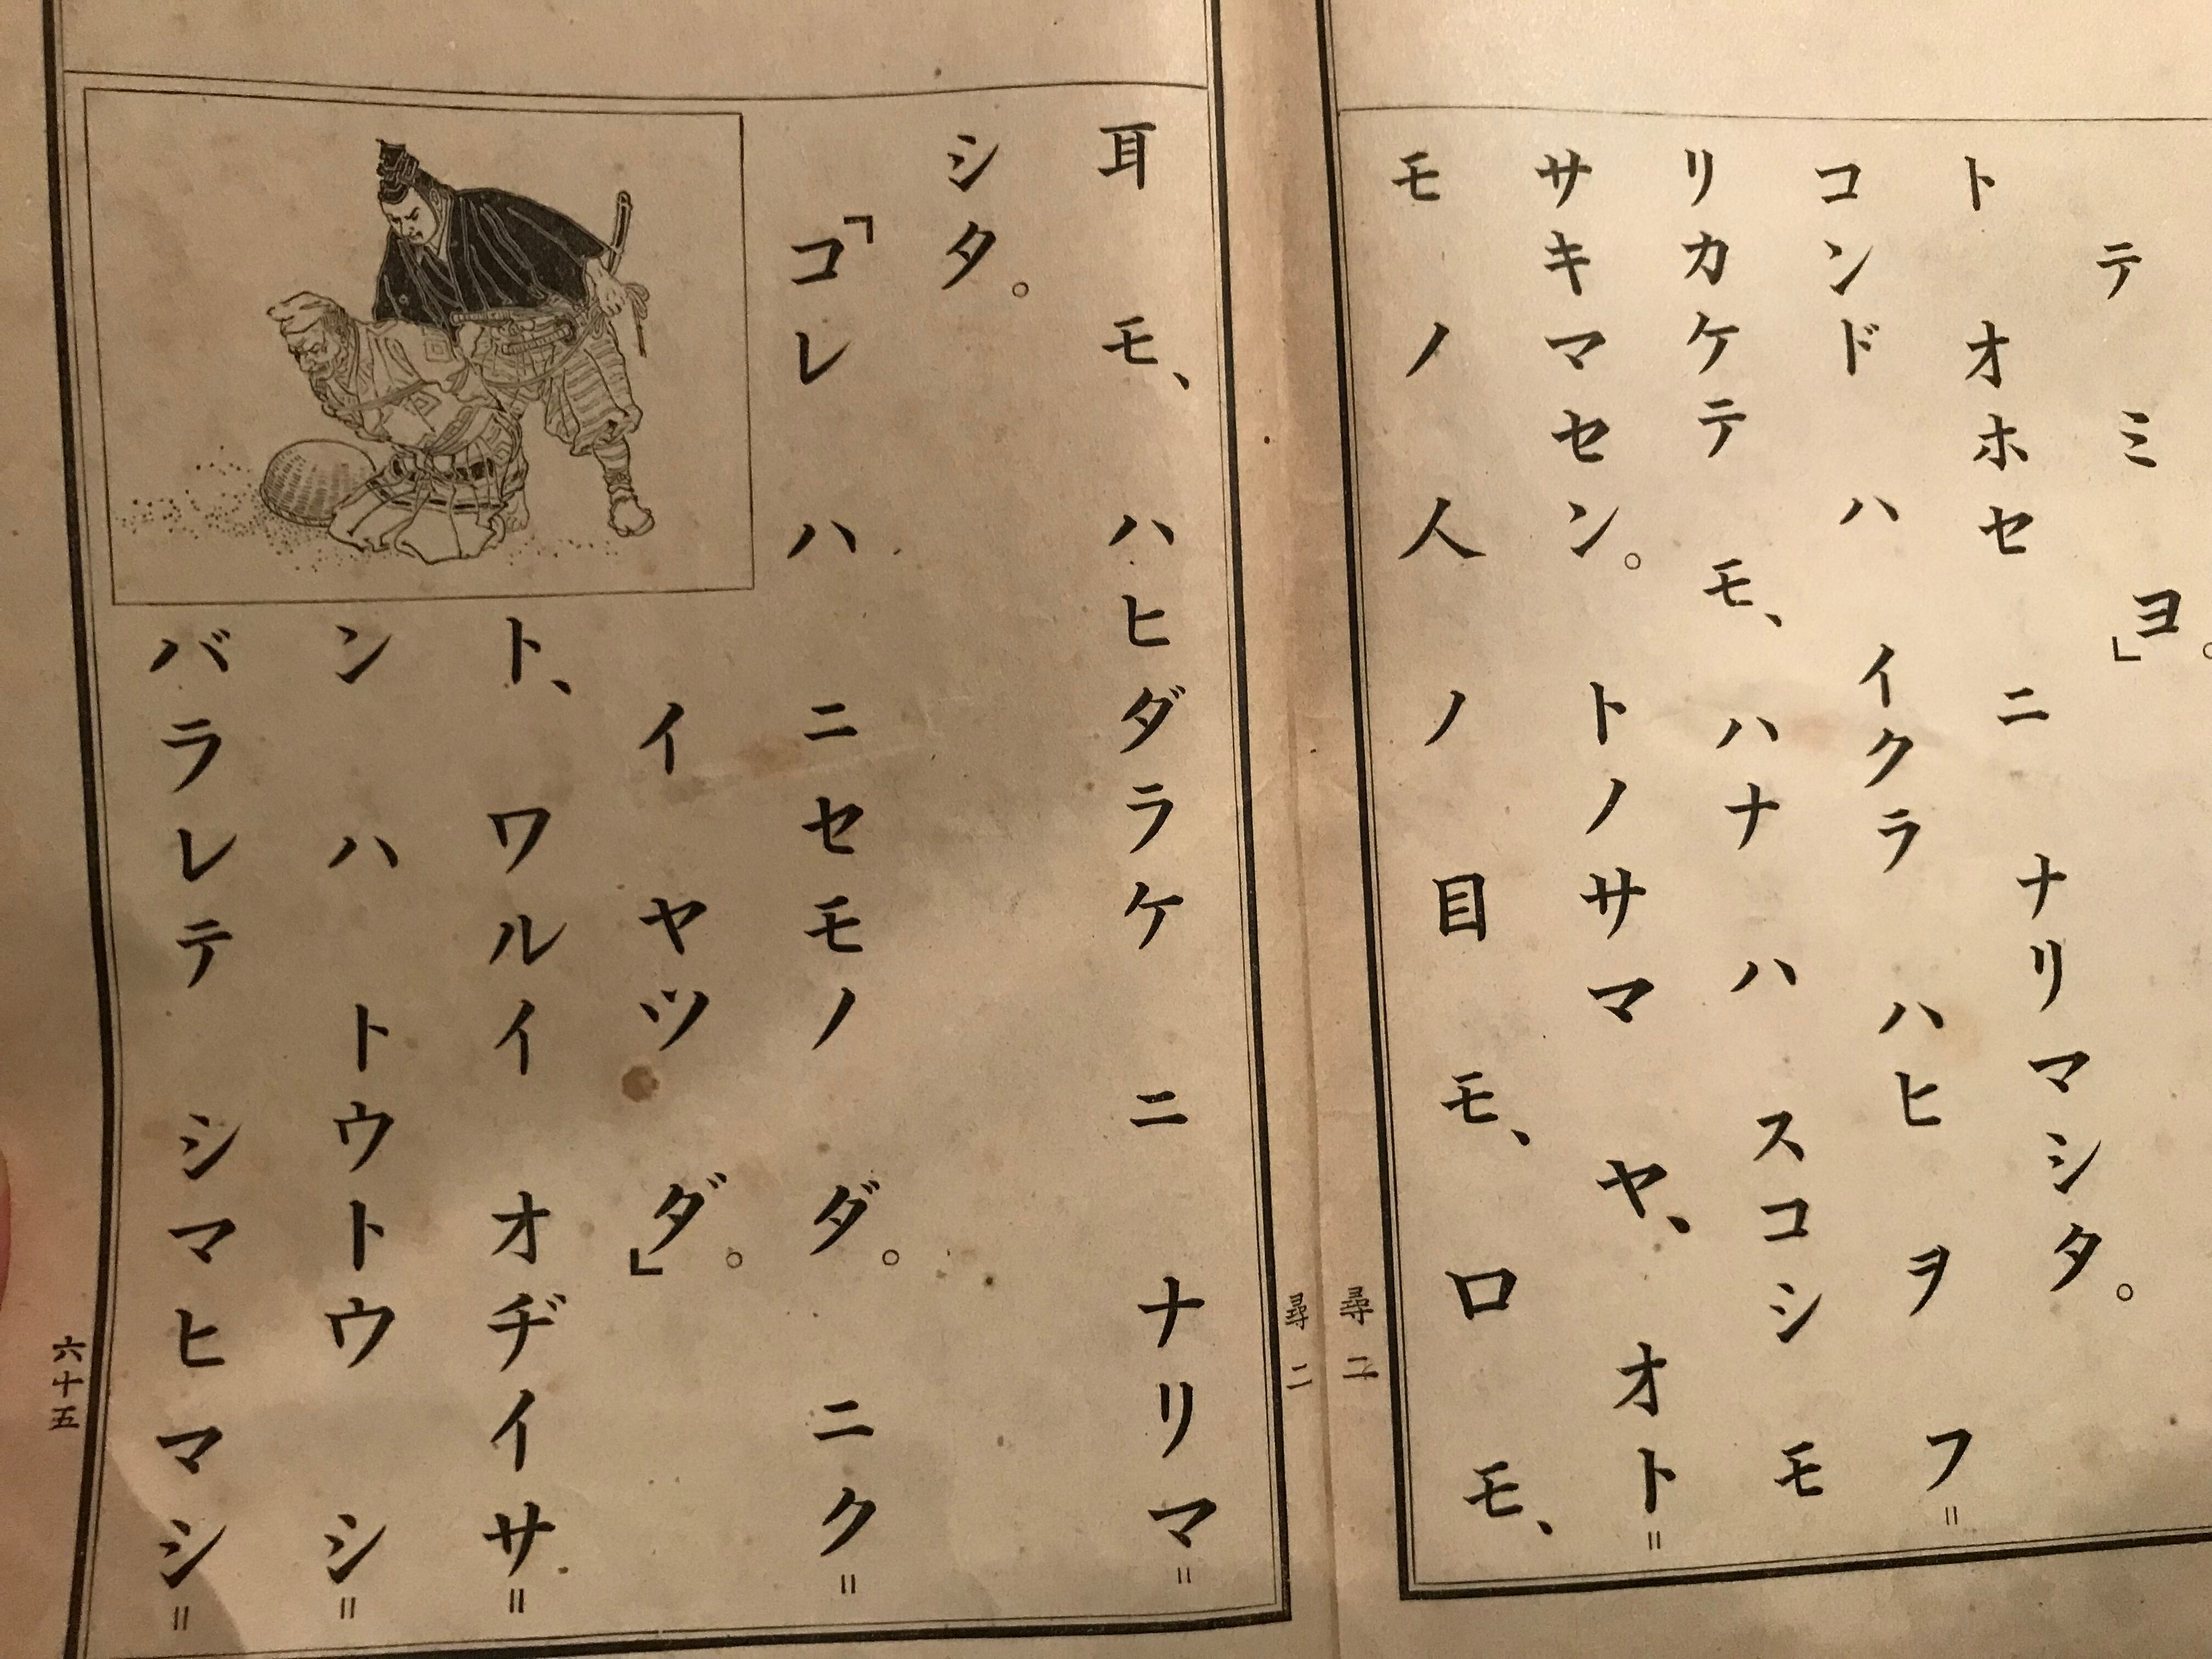 テ ミ ヨ。」
ト オホセ ニ ナリマシタ。
コンド ハ イクラ ハヒ ヲ フ=
リカケテ モ、ハナ ハ スコシ モ
サキマセン。 トノサマ ヤ、オト=
モ ノ 人 ノ 目 モ、口 モ、
尋二
尋二
耳 モ、ハヒダラケ ニ ナリマ=
シタ。
「コレ ハ ニセモノ ダ。 ニク=
イ ヤツ ダ。」
ト、ワルイ オヂイサ=
ン ハ トウトウ シ=
バラレテ シマヒマシ=
六十五